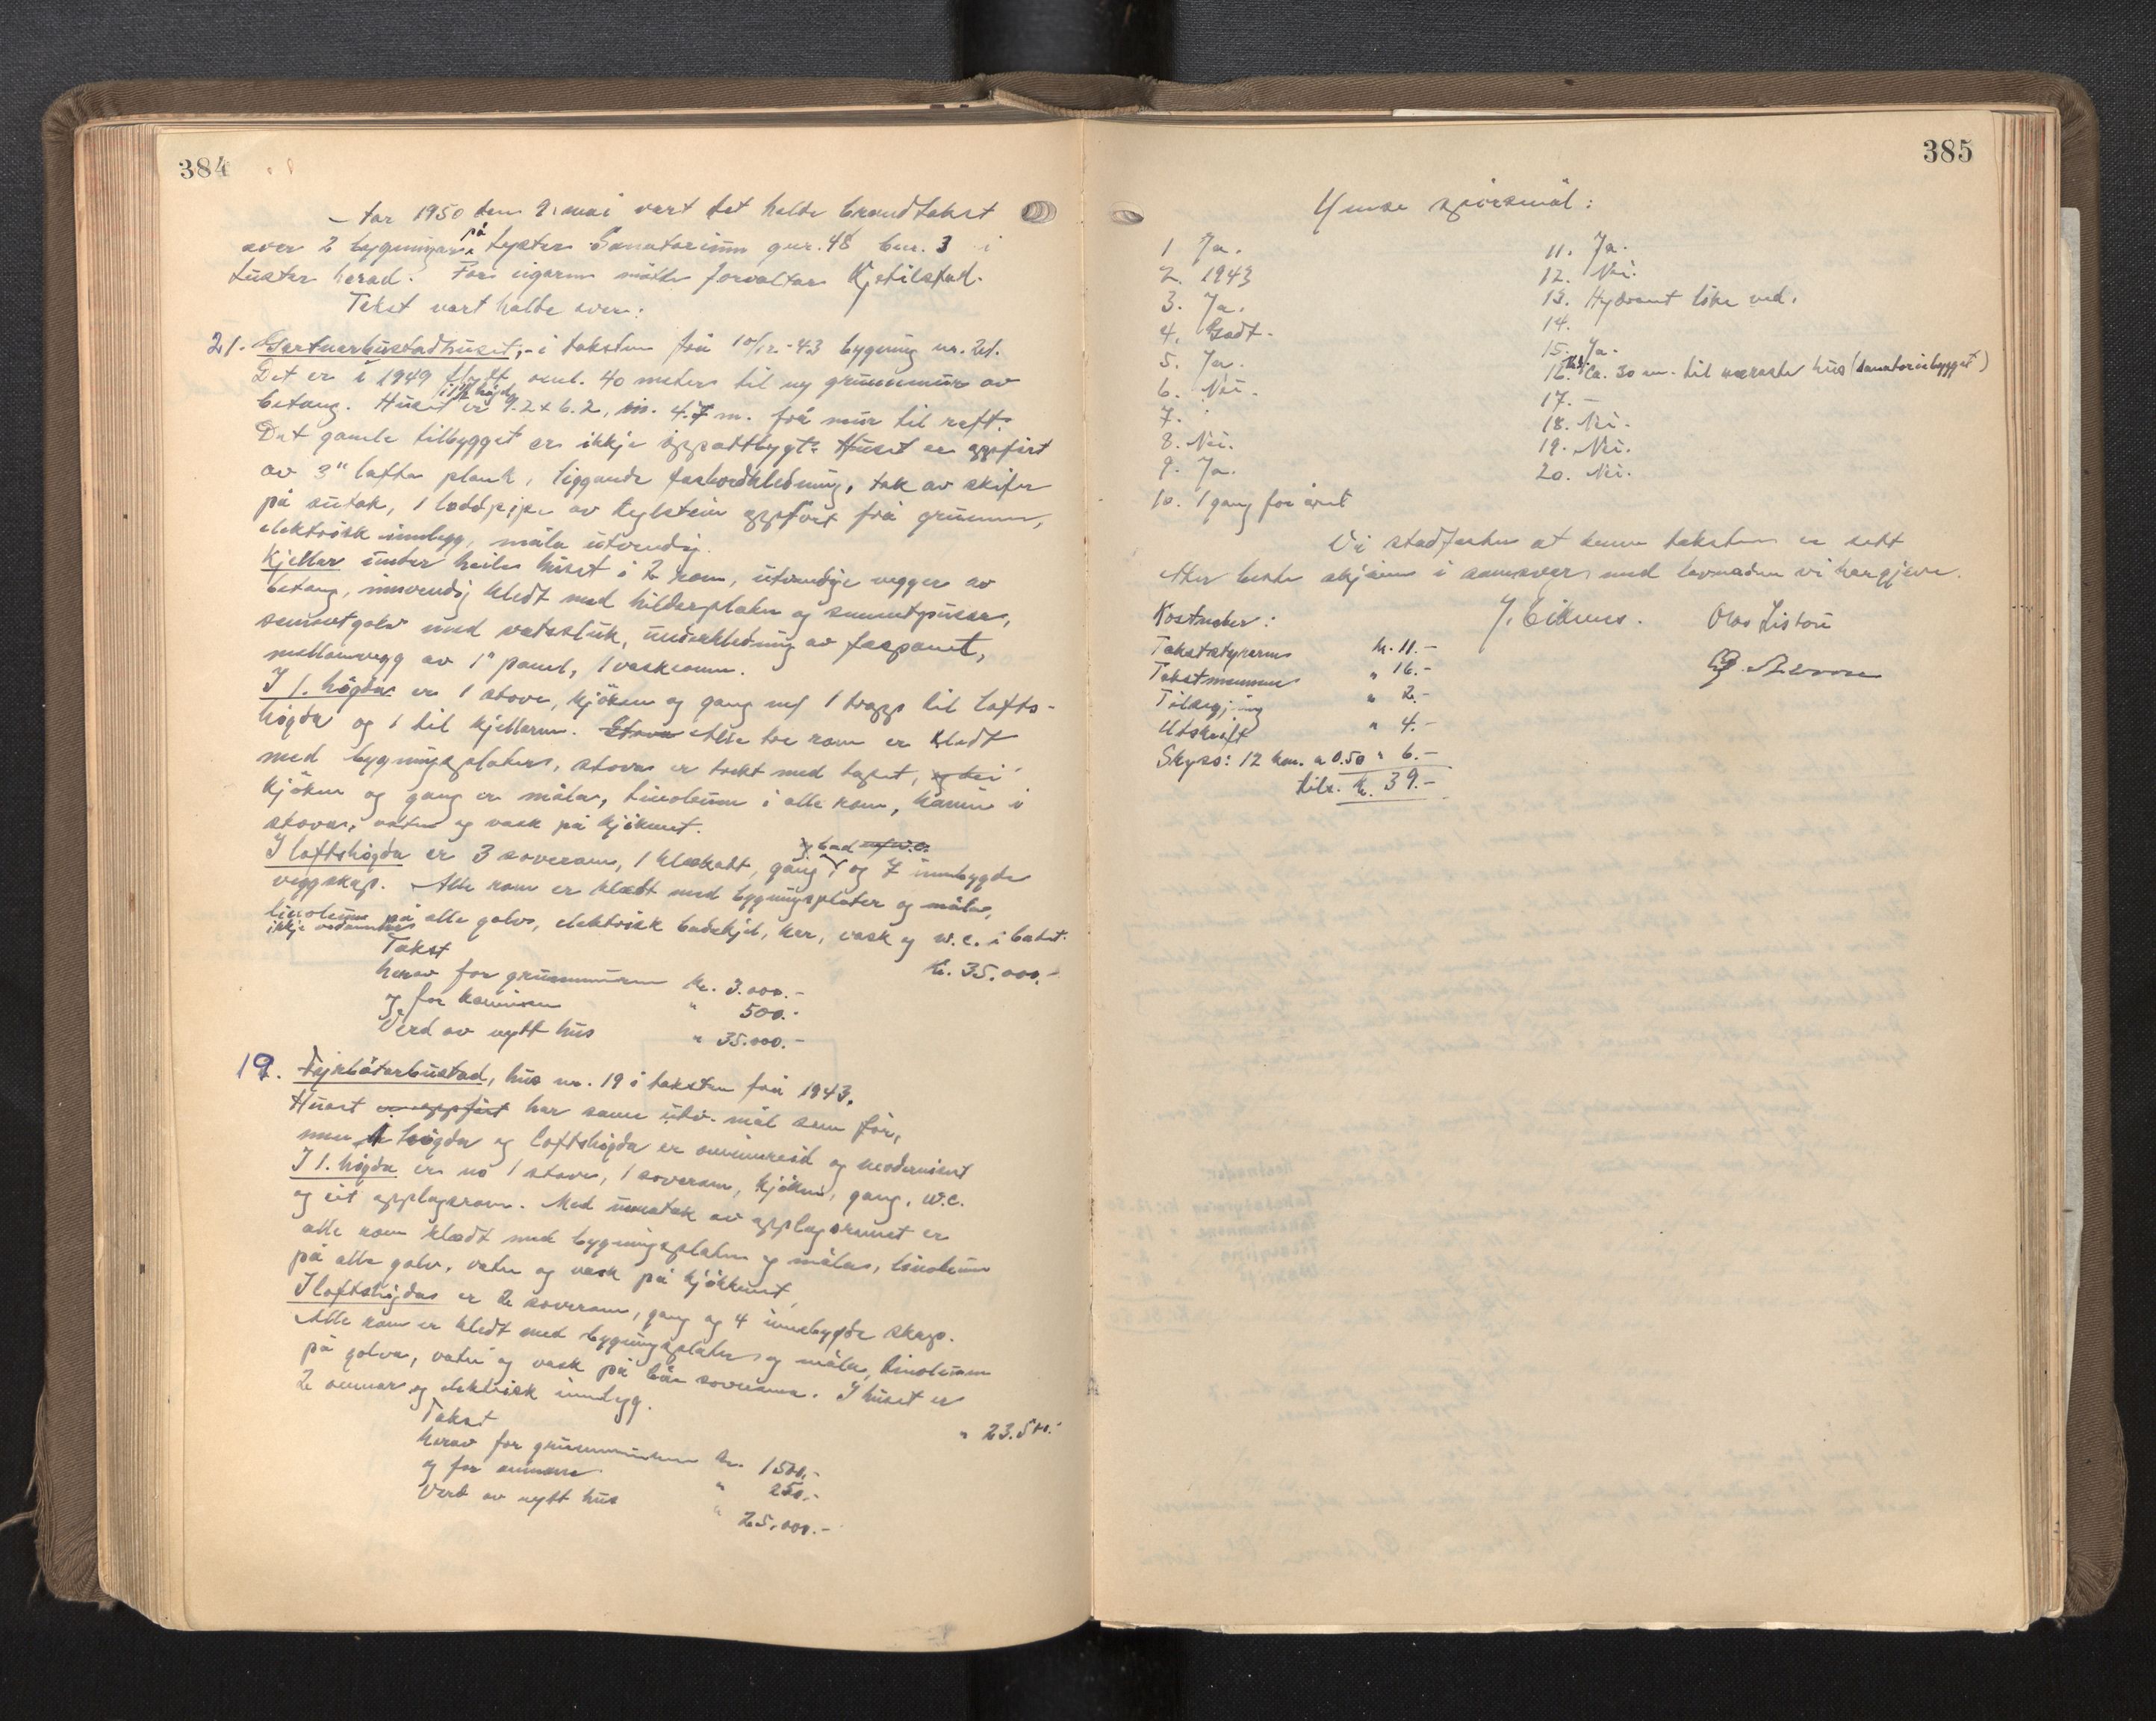 384
År 1950 den 9. mai vart det halde brandtakst
over 2 bygningar på Lyster Sanatorium gnr. 48 bnr. 3 i
Luster herad. For eigaren møtte forvaltar Kjetilstad.
Takst vart halde over:
21. Gartnarbustadhuset, - i taksten frå 10/12-43 bygning nr. 21.
Det er i 1949 flytt oml. 40 meter til ny grunnmur av
betong. Huset er i 1 1/2 høgd 9.2 x 6.2, m. 4.7 m. frå mur til raft.
Det gamle tilbygget er ikkje oppattbygt. Huset er oppført
av 3" lafta plank, liggande fasbordkledning, tak av skifer
på sutak, 1 loddpipe av teglstein oppført frå grunnen,
elektrisk innlegg, måla utvendig.
Kjellar under heile huset i 2 rom, utvendige vegger av
betong, innvendig kledt med kilderplater og sementpussa,
sementgolv med vatsluk, underkledning av faspanel,
mellomvegg av 1" panel, 1 vaskeomn.
I 1. høgda er 1 stove, kjøken og gang m/ 1 trapp til lofts-
høgda og 1 til kjellaren. Stova Alle tre rom er kledt
med bygningsplater, stova er trekt med tapet, og dei
kjøken og gang er måla, linoleum i alle rom, kamin i
stova, vatn og vask på kjøkenet.
I loftshøgda er 3 soverom, 1 kleskott, gang og bad m/w.c. og 7 innbygde
veggskap. Alle rom er kledt med bygningsplater og måla,
linoleum på alle golv, elektrisk badekjel, kar, vask og w.c. i badet.
ikkje vedomnar
Takst kr. 35.000.-
herav for grunnmuren kr. 3.000.-
og for kaminen " 500.-
Verd av nytt hus " 35.000.-
19. Fyrbøterbustad, hus nr. 19 i taksten frå 1943.
Huset er oppført har same utv. mål som før,
men 1 høgda og loftshøgda er ominnreid og modernisert
I 1. høgda er no 1 stove, 1 soverom, kjøken, gang, w.c.
og eit opplagsrom. Med unnatak av opplagsromet er
alle rom kledt med bygningsplater og måla, linoleum
på alle golv, vatn og vask på kjøkkenet
I loftshøgda er 2 soverom, gang og 4 innebygde skap.
Alle rom er kledt med bygningsplater og måla, linoleum
på golva, vatn og vask på båe soveromma. I huset er
2 omnar og elektrisk innlegg.
Takst " 23.500.-
herav for grunnmuren kr. 1500.-
og for omnane " 250.-
Verd av nytt hus " 25.000.-
385
Ymse spørsmål:
1 Ja.
2. 1943
3. Ja.
4. Godt.
5. Ja.
6. Nei.
7.
8. Nei.
9. Ja.
10. 1 gang for året
11. Ja.
12. Nei.
13. Hydrant like ved.
14.
15. Ja.
16. Ca. 30 m. til næraste hus (sanatoriebygget)
17. -
18. Nei.
19. Nei.
20. Nei.
Vi stadfester at denne taksten er sett
etter beste skjønn i samsvar med lovnaden vi har gjeve.
Kostnader:
Takststyraren kr. 11.-
Takstmennene " 16.-
Tilsegjing " 2.-
Utskrift " 4.-
Skyss: 12 km. a 0.50 " 6.-
tils. kr. 39.-